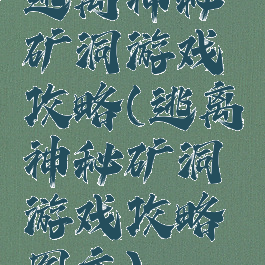 逃离神秘
矿洞游戏
攻略(逃离
神秘矿洞
游戏攻略